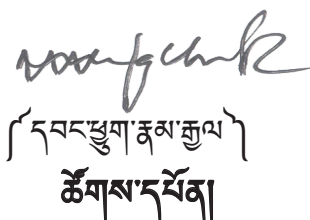 ༼དབང་ཕྱུག་རྣམ་རྒྱལ༽
ཚོགས་དཔོན།